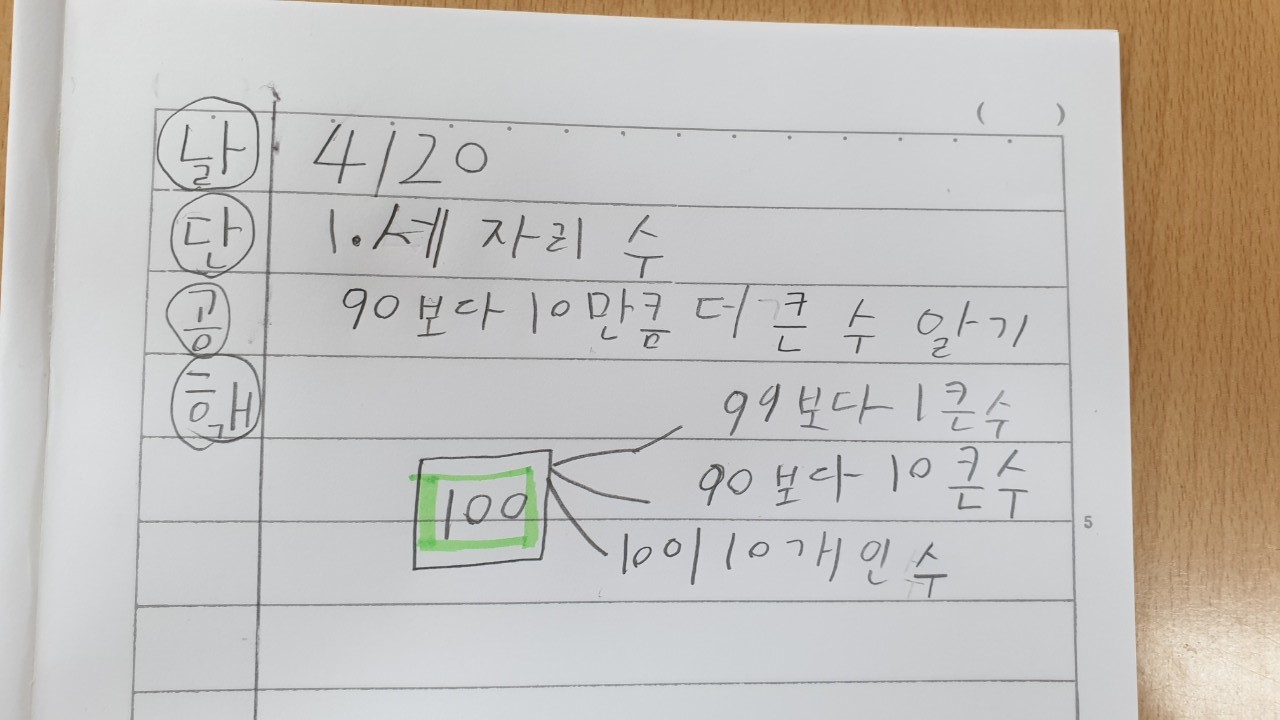 ( )
날 4/20
단 1. 세 자리 수
공 90보다 10만큼 더 큰 수 알기
핵 99보다 1 큰수
90보다 10 큰수
100
10이 10개인 수
5